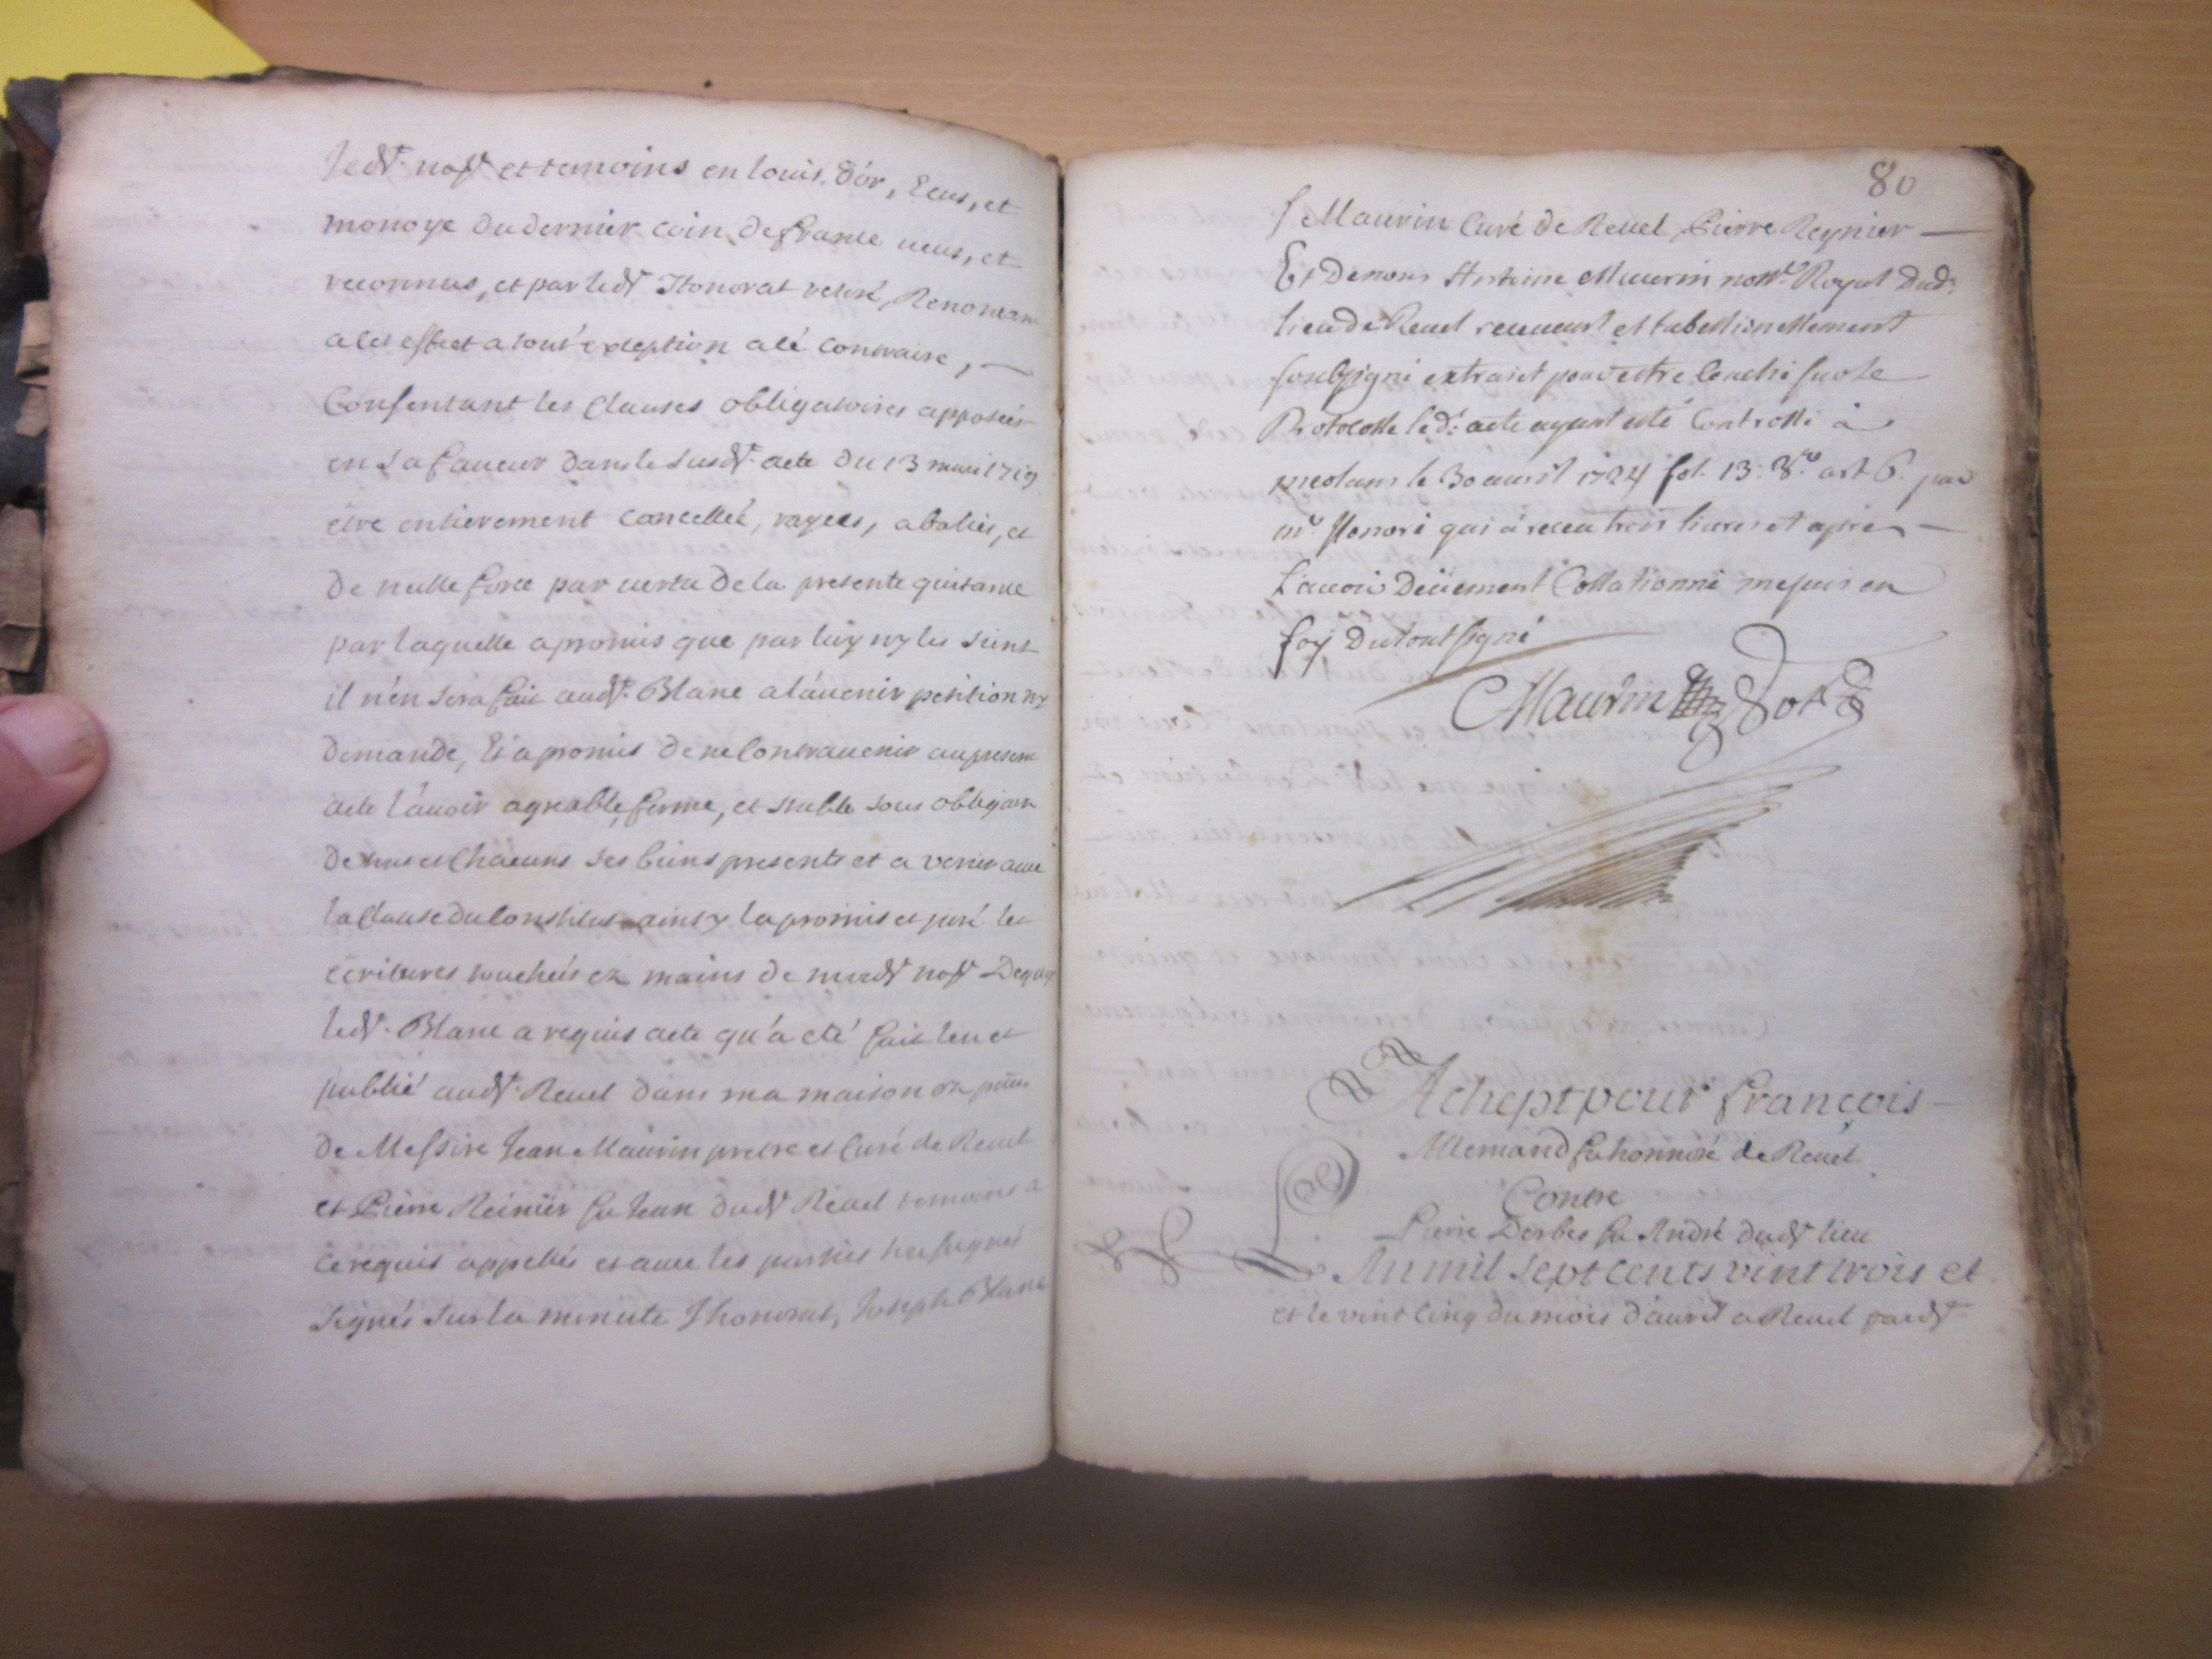 ledt nore et temoins en louis d'or, Ecus, et
monoye du dernier coin de france ueus, et
reconnus, et par ledt Honorat retiré, Renonceant
a cet effaict a tout'exception a cé contraire,
Consentant les Clauses obligatoires apposées
en sa faueur dans le susdt acte du 13 mars 1719
etre entierement cancellée, rayees, abolies, et
de nulle force par uertu de la presente quitance
par laquelle a promis que par luy ny les siens
il n'en sera fait audt Blanc a láuenir petition ny
demande, Et a promis de ne Contrauenir au present
acte láuoir agreable, ferme, et stable sous obligaon
de tous et Chacuns ses biens presents et a venir auec
la Clause du Constitut ainsy la promis et juré les
ecritures touchées ez mains de moudt nore Dequoy
ledt Blanc a requis acte qu'a eté fait leu et
publié audt Reuel dans ma maison en pñce
de Messire Jean Maurin pretre et Curé de Reuel
et Pierre Reinier fu Jean dudt Reuel temoins a
ce requis appellés et auec les parties soussignés
signés sur la minute J honorat, Joseph Blanc
80
J Maurin Curé de Reuel Pierre Reynier
Et De nous Antoine Maurin notre Royal Dud:
lieu de Reuel receuant et tabellionellement
soubsigné extraict pour estre couché sur le
Protocolle led: acte ayant esté Controllé à
meolans le 30 auril 1724 fol. 13: Vo art 6. par
mr honoré qui a receu trois liures et apres
L'auoir Deüement Collationné me suis en
foy Du tout signé
Maurin Not
Achept pour françois
Allemand fu honnoré de Reuel
Contre
Pierre Derbes fu André dudt lieu
An mil sept cents vint trois et
et le vint cinq du mois d'auril a Reuel pardt